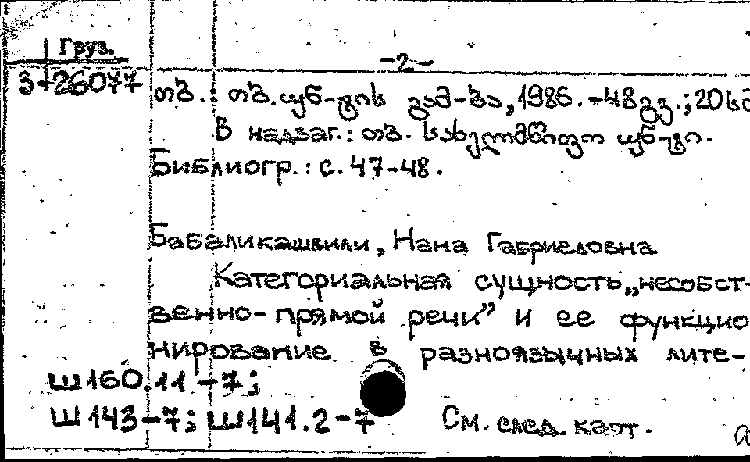 Груз.
-2-
3-26077
თბ.: თბ. უნ-ტის გამ-ბა, 1986. - 48გვ.; 20სმ
В надзаг.: თბ. სახელმწიფო უნ-ტი.
Библиогр.: с. 47-48.
Бабаликашвили, Нана Габриеловна
Категориальная сущность „несобст-
венно-прямой речи” и ее функцио
нирование в разноязычных лите-
Ш160.11-7;
Ш143-7; Ш141.2-7 См. след. карт.